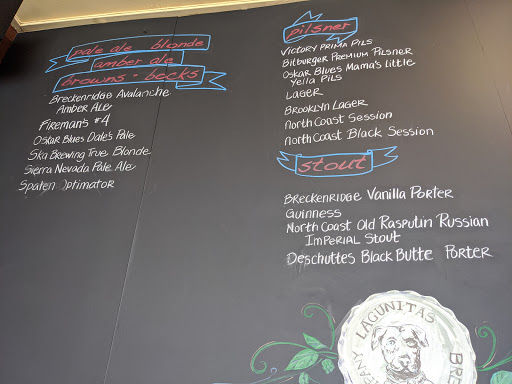 pale ale - blonde
amber ale
browns - bocks
Breckenridge Avalanche
Amber Ale
Fireman's #4
Oskar Blues Dale's Pale
Ska Brewing True Blonde
Sierra Nevada Pale Ale
Spaten Optimator
pilsner
Victory Prima Pils
Bitburger Premium Pilsner
Oskar Blues Mama's Little
Yella Pils
Lager
Brooklyn Lager
North Coast Session
North Coast Black Session
stout
Breckenridge Vanilla Porter
Guinness
North Coast Old Rasputin Russian
Imperial Stout
Deschuttes Black Butte Porter
LAGUNITAS